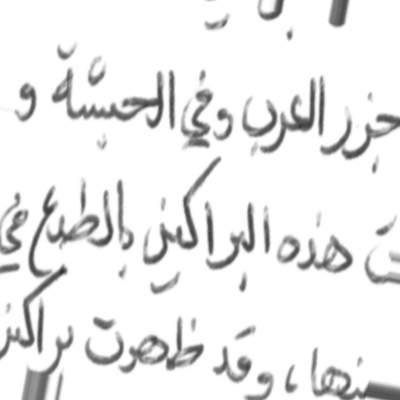 جزر العرب وفي الحبشة و
هذه البراكين بالطبع في
منها ، وقد ظهرت براكين